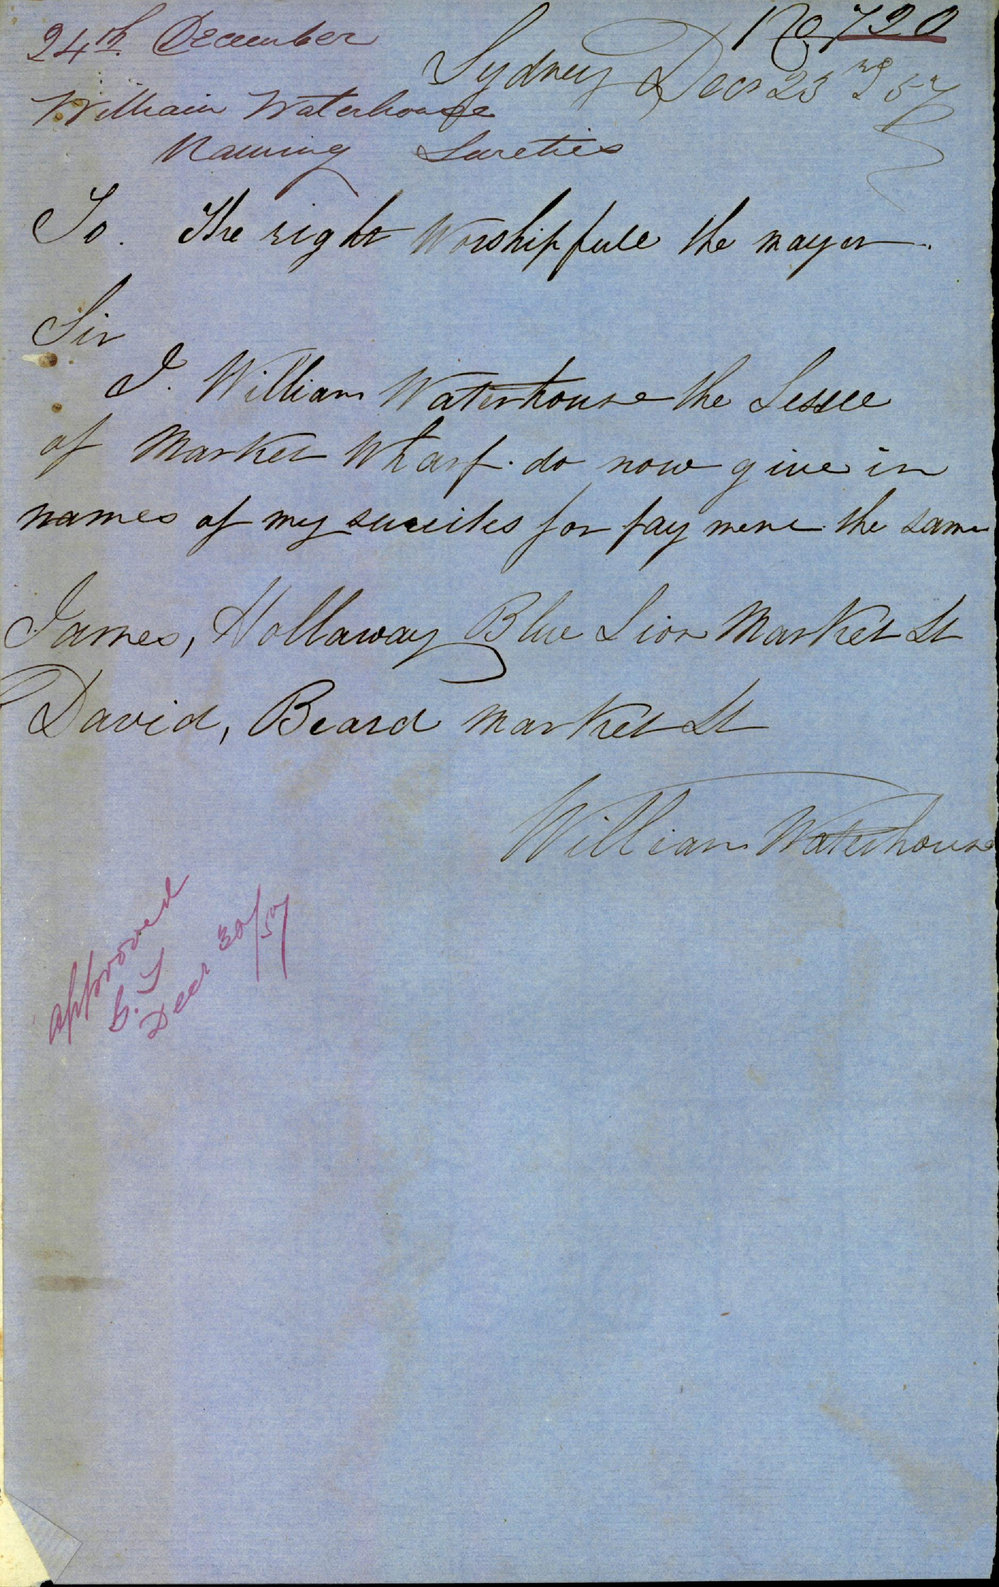 No 720
24th December
Sydney Decr 23rd 57
William Waterhouse
Naming Sureties
To. The right Worshipfull the mayor.
Sir
I. William Waterhouse the Lessee
of Market Wharf. do now give in
names of my sureites for payment the same
James, Hollaway Blue Lion Market St
David, Beard Market St
William Waterhouse
approved
G. T
Decr 30/57